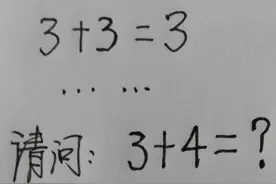 3+3=3
... ...
请问: 3+4=?